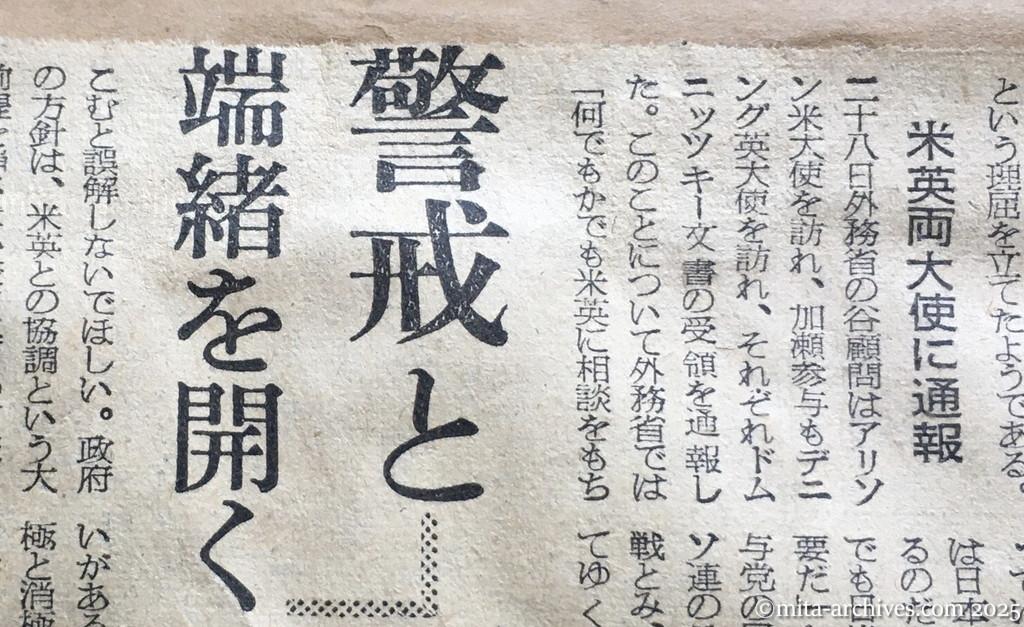 という理屈を立てたようである。
米英両大使に通報
二十八日外務省の谷顧問はアリソ
ン米大使を訪れ、加瀬参与もデニ
ング英大使を訪れ、それぞれドム
ニツツキー文書の受領を通報し
た。このことについて外務省では
「何でもかでも米英に相談をもち
警戒と
端緒を開く
こむと誤解しないでほしい。政府
の方針は、米英との協調という大
は日本
るのだ
でも日
要だ
与党の
ソ連の
戦とみ、
てゆく
いがある
極と消極
©mita-archives.com 2025